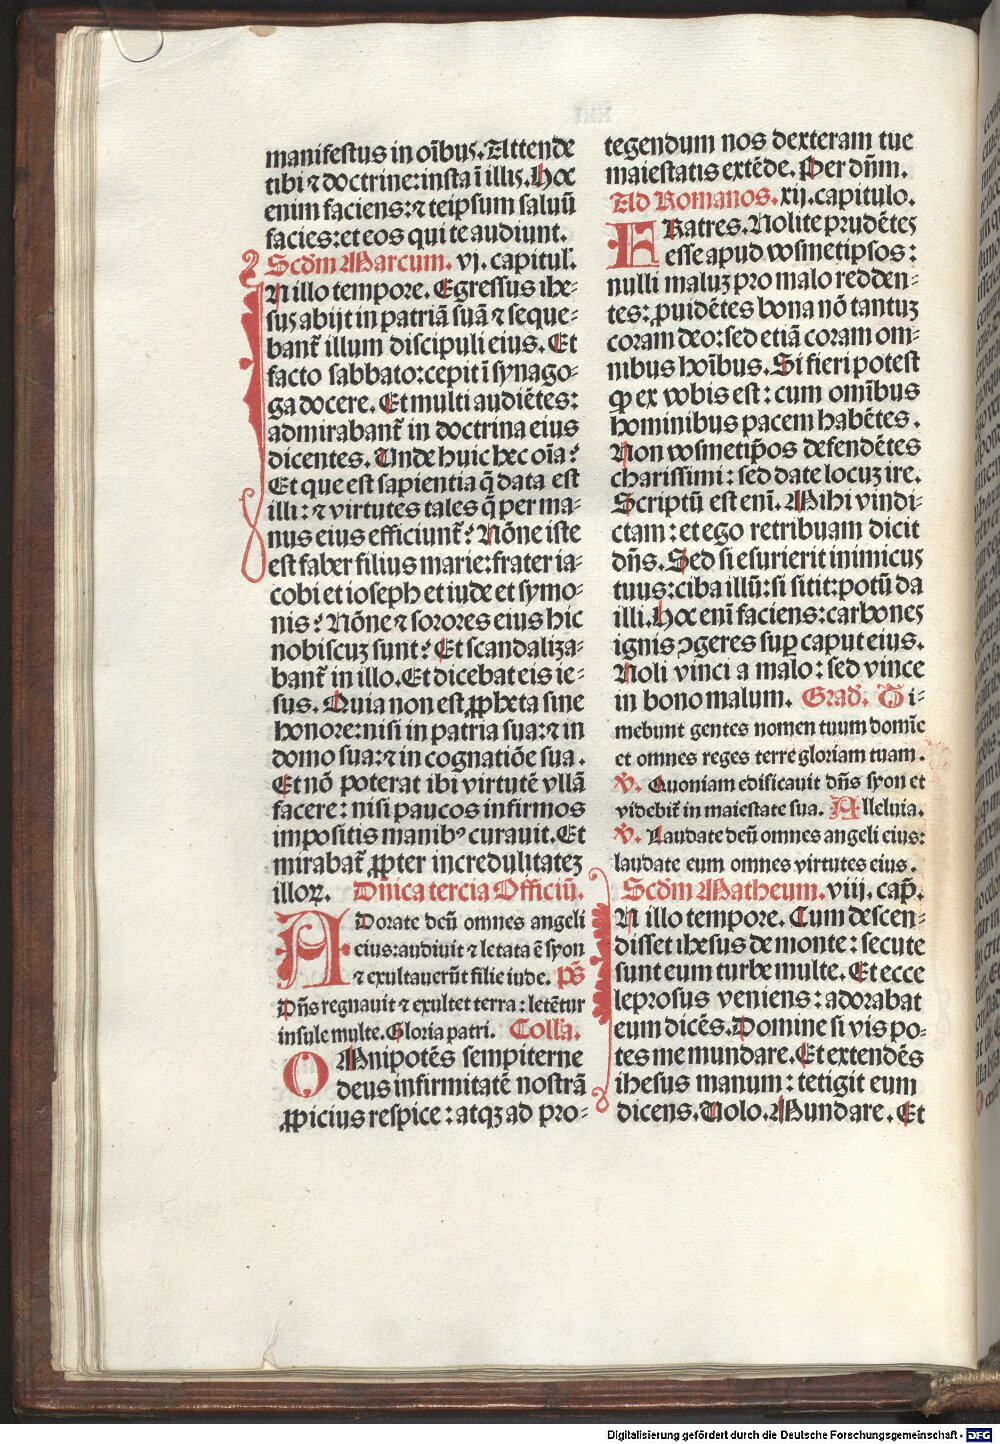 manifestus in oĩbus. Attende
tibi ⁊ doctrine: insta ĩ illis. Hoc
enim faciens: ⁊ teipsum saluũ
facies: et eos qui te audiunt.
Scdm̃ Marcum. vj. capitul'.
IN illo tempore. Egressus ihe-
sus abijt in patriã suã ⁊ seque-
bant̃ illum discipuli eius. Et
facto sabbato: cepit ĩ synago-
ga docere. Et multi audiẽtes:
admirabant̃ in doctrina eius
dicentes. Unde huic hec oĩa?
Et que est sapientia q̃ data est
illi: ⁊ virtutes tales q̃ per ma-
nus eius efficiunt̃? Nõne iste
est faber filius marie: frater ia-
cobi et ioseph et iude et symo-
nis? Nõne ⁊ sorores eius hic
nobiscuz sunt? Et scandaliza-
bant̃ in illo. Et dicebat eis ie-
sus. Quia non est ꝓpheta sine
honore: nisi in patria sua: ⁊ in
domo sua: ⁊ in cognatiõe sua.
Et nõ poterat ibi virtutẽ vllã
facere: nisi paucos infirmos
impositis manibꝰ curauit. Et
mirabat̃ ꝓpter incredulitatez
illoꝝ. Dñica tercia Officiũ.
ADorate deũ omnes angeli
eius: audiuit ⁊ letata ẽ syon
⁊ exultauerũt filie iude. p̃s
Dñs regnauit ⁊ exultet terra: letẽtur
insule multe. Gloria patri. Colla.
OMnipotẽs sempiterne
deus infirmitatẽ nostrã
ꝓpicius respice: atqꝫ ad pro-
tegendum nos dexteram tue
maiestatis extẽde. Per dñm.
Ad Romanos. xij. capitulo.
FRatres. Nolite prudẽtes
esse apud vosmetipsos:
nulli maluz pro malo redden-
tes: ꝓuidẽtes bona nõ tantuz
coram deo: sed etiã coram om-
nibus hoĩbus. Si fieri potest
qp ex vobis est: cum omĩbus
hominibus pacem habẽtes.
Non vosmetip̃os defendẽtes
charissimi: sed date locuz ire.
Scriptũ est enĩ. Mihi vindi-
ctam: et ego retribuam dicit
dñs. Sed si esurierit inimicus
tuus: ciba illũ: si sitit: potũ da
illi. Hoc enĩ faciens: carbones
ignis ↄgeres suꝑ caput eius.
Noli vinci a malo: sed vince
in bono malum. Grad'. Ti-
mebunt gentes nomen tuum domĩe
et omnes reges terre gloriam tuam.
℣. Quoniam edificauit dñs syon et
videbit̃ in maiestate sua. Alleluia.
℣. Laudate deũ omnes angeli eius:
laudate eum omnes virtutes eius.
Scdm̃ Matheum. viij. cap̃.
IN illo tempore. Cum descen-
disset ihesus de monte: secute
sunt eum turbe multe. Et ecce
leprosus veniens: adorabat
eum dicẽs. Domine si vis po-
tes me mundare. Et extendẽs
ihesus manum: tetigit eum
dicens. Uolo. Mundare. Et
Digitalisierung gefördert durch die Deutsche Forschungsgemeinschaft - DFG